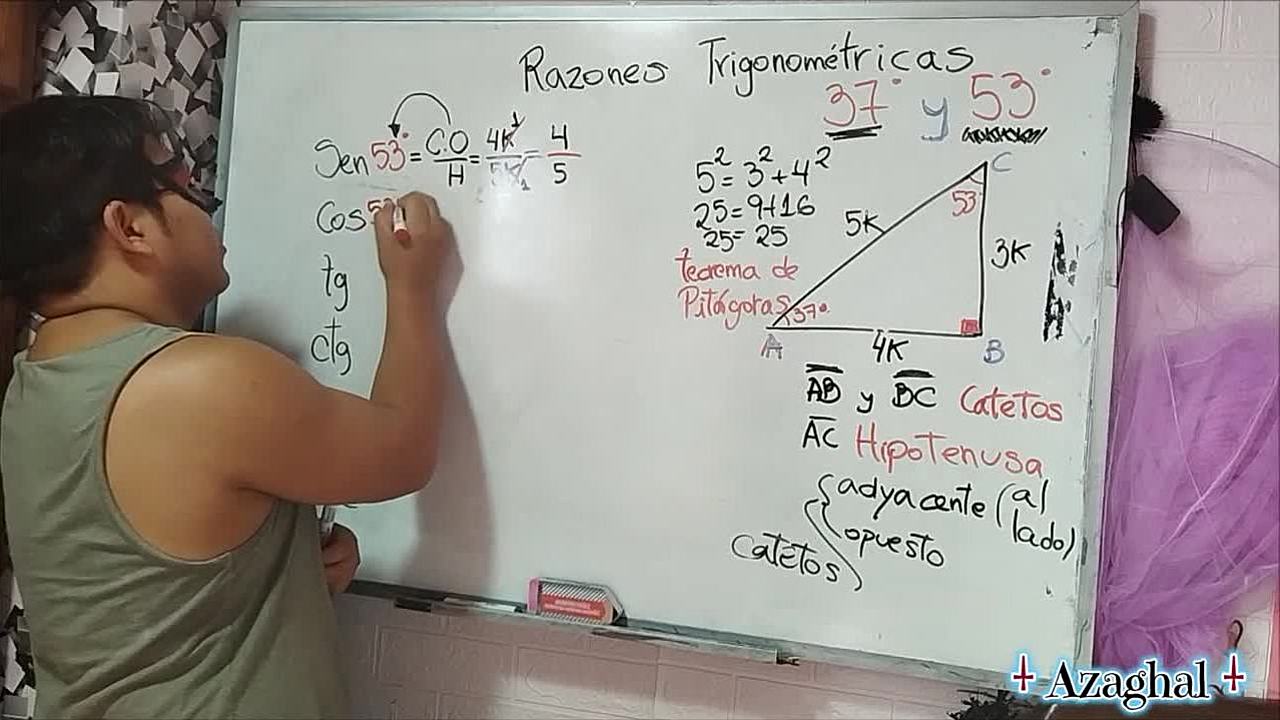 Razones Trigonométricas
37° y 53°
Sen 53° = C.O/H = 4K/5K = 4/5
Cos 53
tg
ctg
5² = 3² + 4²
25 = 9+16
25 = 25
teorema de
Pitágoras
C
53
5K
3K
37°
A
4K
B
AB y BC Catetos
AC Hipotenusa
Catetos
adyacente (al
lado)
opuesto
Azaghal